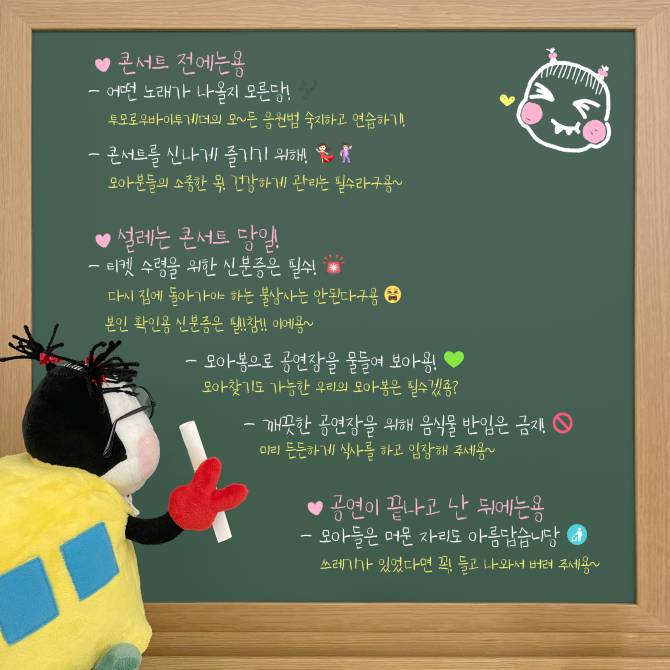 콘서트 전에는용
- 어떤 노래가 나올지 모른당!
투모로우바이투게더의 모~든 응원법 숙지하고 연습하기!
- 콘서트를 신나게 즐기기 위해!
모아분들의 소중한 목! 건강하게 관리는 필수라구용~
설레는 콘서트 당일!
- 티켓 수령을 위한 신분증은 필수!
다시 집에 돌아가야 하는 불상사는 안된다구용
본인 확인용 신분증은 필!!참!! 이에용~
- 모아봉으로 공연장을 물들여 보아용!
모아찾기도 가능한 우리의 모아봉은 필수겠죵?
- 깨끗한 공연장을 위해 음식물 반입은 금지!
미리 든든하게 식사를 하고 입장해 주세용~
공연이 끝나고 난 뒤에는용
- 모아들은 머문 자리도 아름답습니당
쓰레기가 있었다면 꼭! 들고 나와서 버려 주세용~